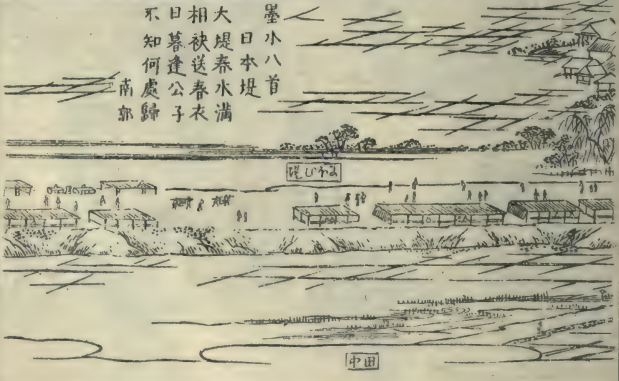 墨水八首
日本堤
大堤春水満
相袂送春衣
日暮逢公子
不知何處歸
南郭
田中